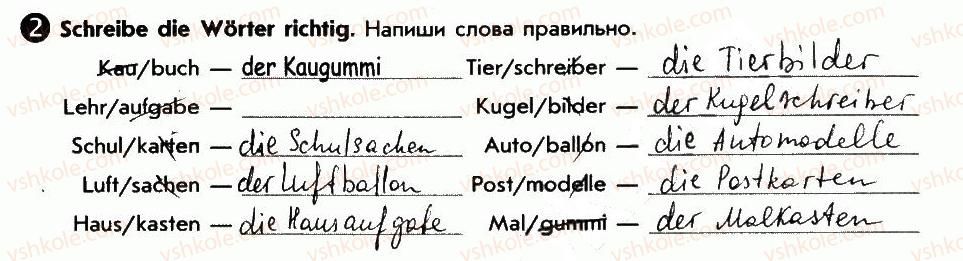 2 Schreibe die Wörter richtig. Напиши слова правильно.
Kau/buch — der Kaugummi Tier/schreiber — die Tierbilder
Lehr/aufgabe — Kugel/bilder — der Kugelschreiber
Schul/karten — die Schulsachen Auto/ballon — die Automodelle
Luft/sachen — der Luftballon Post/modelle — die Postkarten
Haus/kasten — die Hausaufgabe Mal/gummi — der Malkasten